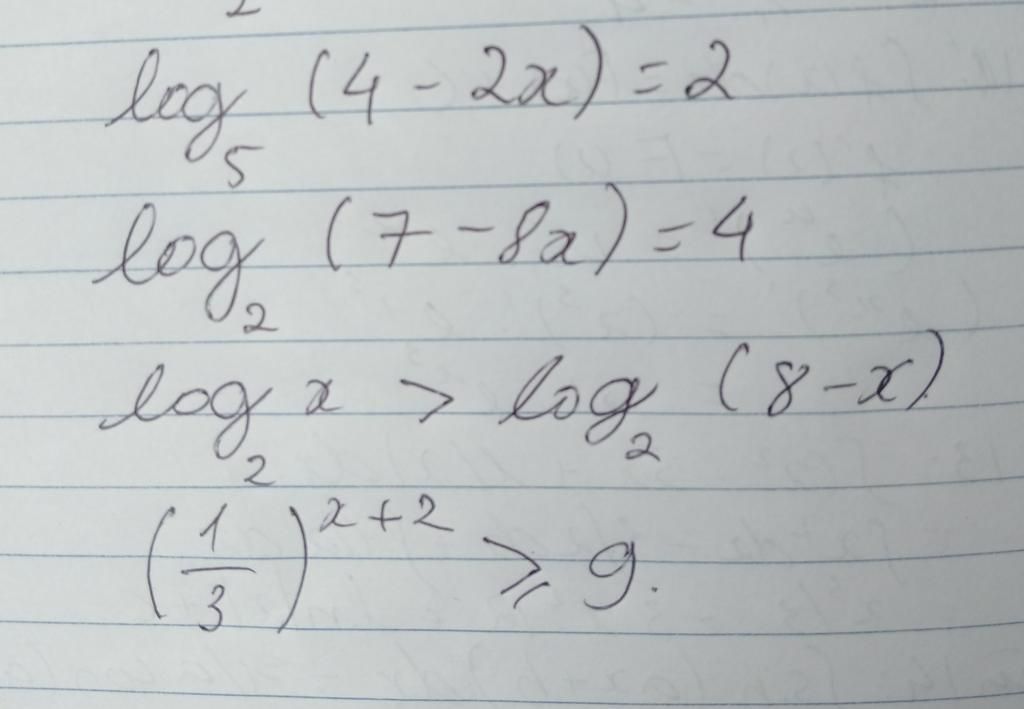 log₅ (4 - 2x) = 2
log₂ (7 - 8x) = 4
log₂ x > log₂ (8 - x)
(1/3)^(x+2) ⩾ 9.